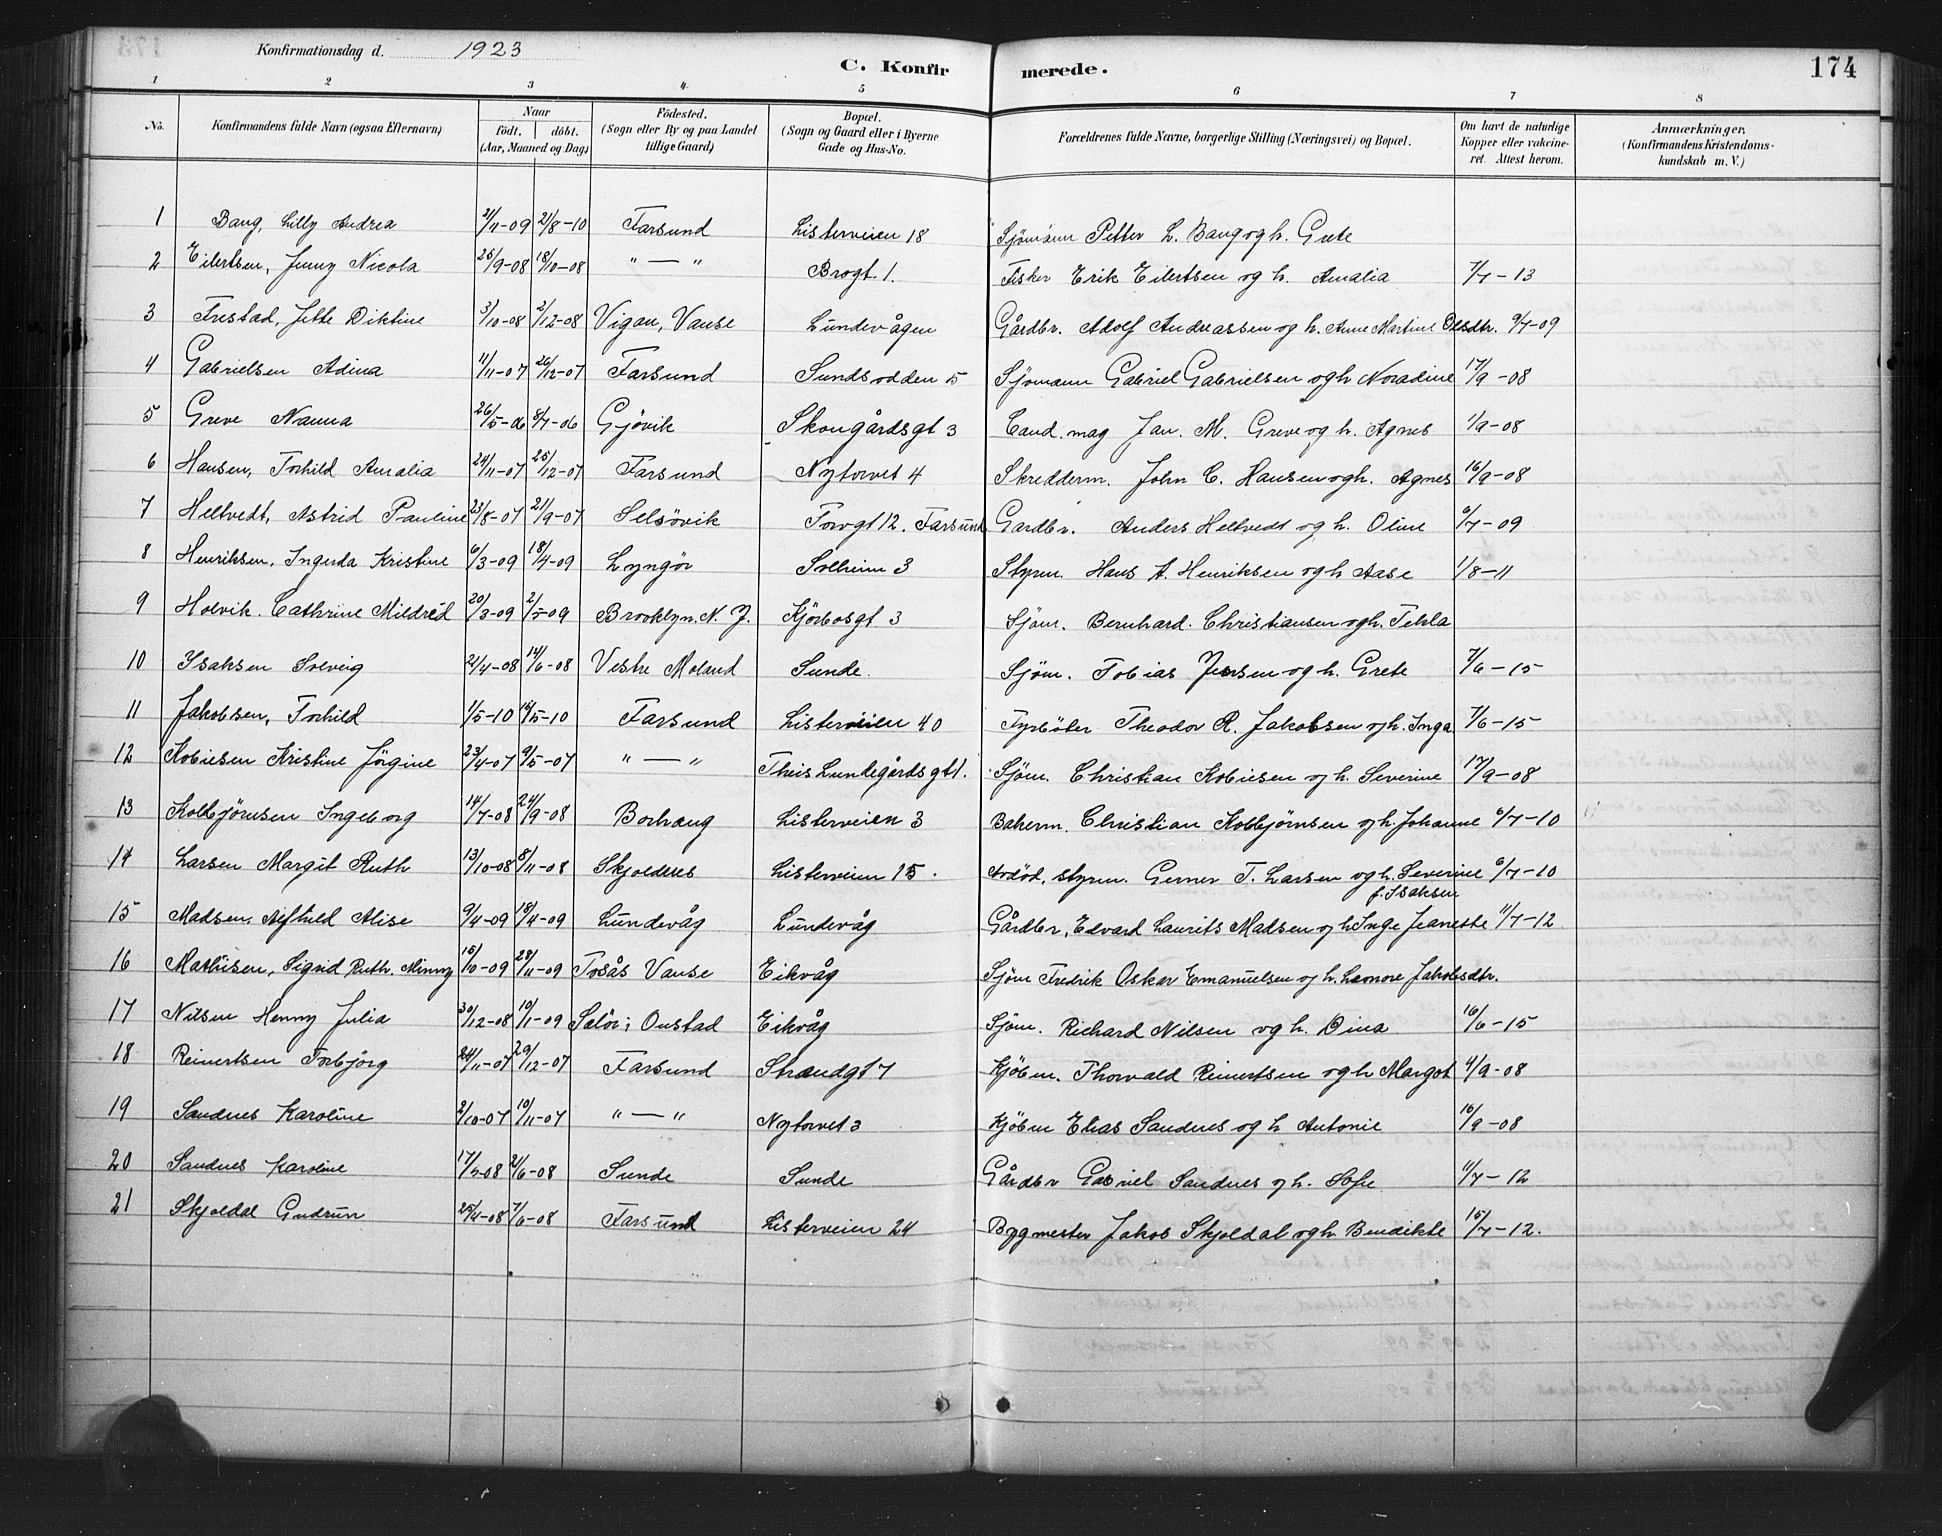 Konfirmationsdag d. 1923
C. Konfirmerede.
174
1 2 3 4 5 6 7 8
No.
Konfirmandens fulde Navn (ogsaa Efternavn)
Naar
födt. döbt.
(Aar, Maaned og Dag)
Födested.
(Sogn eller By og paa Landet
tillige Gaard)
Bopæl.
(Sogn og Gaard eller i Byerne
Gade og Hus-No.
Forældrenes fulde Navne, borgerlige Stilling (Næringsvei) og Bopæl.
Om havt de naturlige
Kopper eller vakcine-
ret. Attest herom.
Anmærkninger.
(Konfirmandens Kristendoms-
kundskab m. V.)
1 Bang, Lilly Andrea 2/11-09 21/8-10 Farsund Listerveien 18 Sjömann Petter L. Bang og h. Grete
2 Eilertsen, Jenny Nicola 25/9-08 18/10-08 " — " Brogt. 1. Fisker Erik Eilertsen og h. Amalia 7/7-13
3 Frestad, Jette Diktine 3/10-08 2/12-08 Vigan, Vanse Lundevågen Gårdbr. Adolf Andreassen og h. Anne Martine Olsdtr. 9/7-09
4 Gabrielsen Adina 11/11-07 26/12-07 Farsund Sundsodden 5 Sjömann Gabriel Gabrielsen og h Noradine 17/9-08
5 Greve Nanna 26/5-06 8/7-06 Gjövik Skougårdsgt 3 Cand. mag Jan. M. Greve og h. Agnes 1/9-08
6 Hansen, Torhild Amalia 24/11-07 25/12-07 Farsund Nytorvet 4 Skredderm. John C. Hansen og h. Agnes 16/9-08
7 Heltvedt, Astrid Pauline 23/8-07 21/9-07 Selsövik Torvgt 12. Farsund Gardbr. Anders Heltvedt og h. Oline 6/7-09
8 Henriksen, Ingerda Kristine 6/3-09 18/4-09 Lyngör Solheim 3 Styrm. Hans A. Henriksen og h Aase 1/8-11
9 Holvik. Cathrine Mildred 20/3-09 2/5-09 Brooklyn. N. J. Kjörbosgt 3 Sjöm. Bernhard. Christiansen og h. Tekla
10 Isaksen Solveig 2/4-08 14/6-08 Vestre Moland Sunde. Sjöm. Tobias Jensen og h. Grete 7/6-15
11 Jakobsen, Torhild 1/5-10 16/5-10 Farsund Listerveien 40 Fyrböter Theodor R. Jakobsen og h. Inga 7/6-15
12 Kobiesen Kristine Jörgine 23/4-07 9/5-07 " — " Theis Lundegårdsgt 1. Sjöm. Christian Kobiesen og h. Severine 17/9-08
13 Kolbjörnsen Ingeborg 14/7-08 24/9-08 Borhaug Listerveien 3 Bakerm. Christian Kolbjörnsen og h. Johanne 6/7-10
14 Larsen Margit Ruth 13/10-08 8/11-08 Skjolderes Listerveien 15. Avdöd, styrm. Gerner T. Larsen og h. Severine 6/7-10
f. Isaksen
15 Madsen, Alfhild Alise 9/4-09 18/4-09 Lundevåg Lundevåg Gårdbr, Edvard Laurits Madsen og h Inge Jeanette 11/7-12
16 Mathisen, Sigrid Ruth Minny 15/10-09 28/11-09 Tosås Vanse Eikvåg Sjöm Fredrik Oskar Emanuelsen og h. Leonore Jakobsdtr.
17 Nilsen Henny Julia 30/12-08 10/1-09 Selör, Onstad Eikvåg Sjöm. Richard Nilsen og h. Dina 16/6-15
18 Reinertsen Torbjörg 24/11-07 29/12-07 Farsund Strandgt 7 Kjöbm. Thorvald Reinertsen og h Margot 4/9-08
19 Sandnes Karoline 2/10-07 10/11-07 " — " Nytorvet 3 Kjöbm Elias Sandnes og h Antonie 16/9-08
20 Sandnes Karoline 17/5-08 21/6-08 Sunde Sunde Gårdbr Gabriel Sandnes og h. Sofie 11/7-12
21 Skjoldal Gudrun 25/4-08 7/6-08 Farsund Listerveien 24 Bygmester Jakob Skjoldal og h. Bendikte 15/7-12.